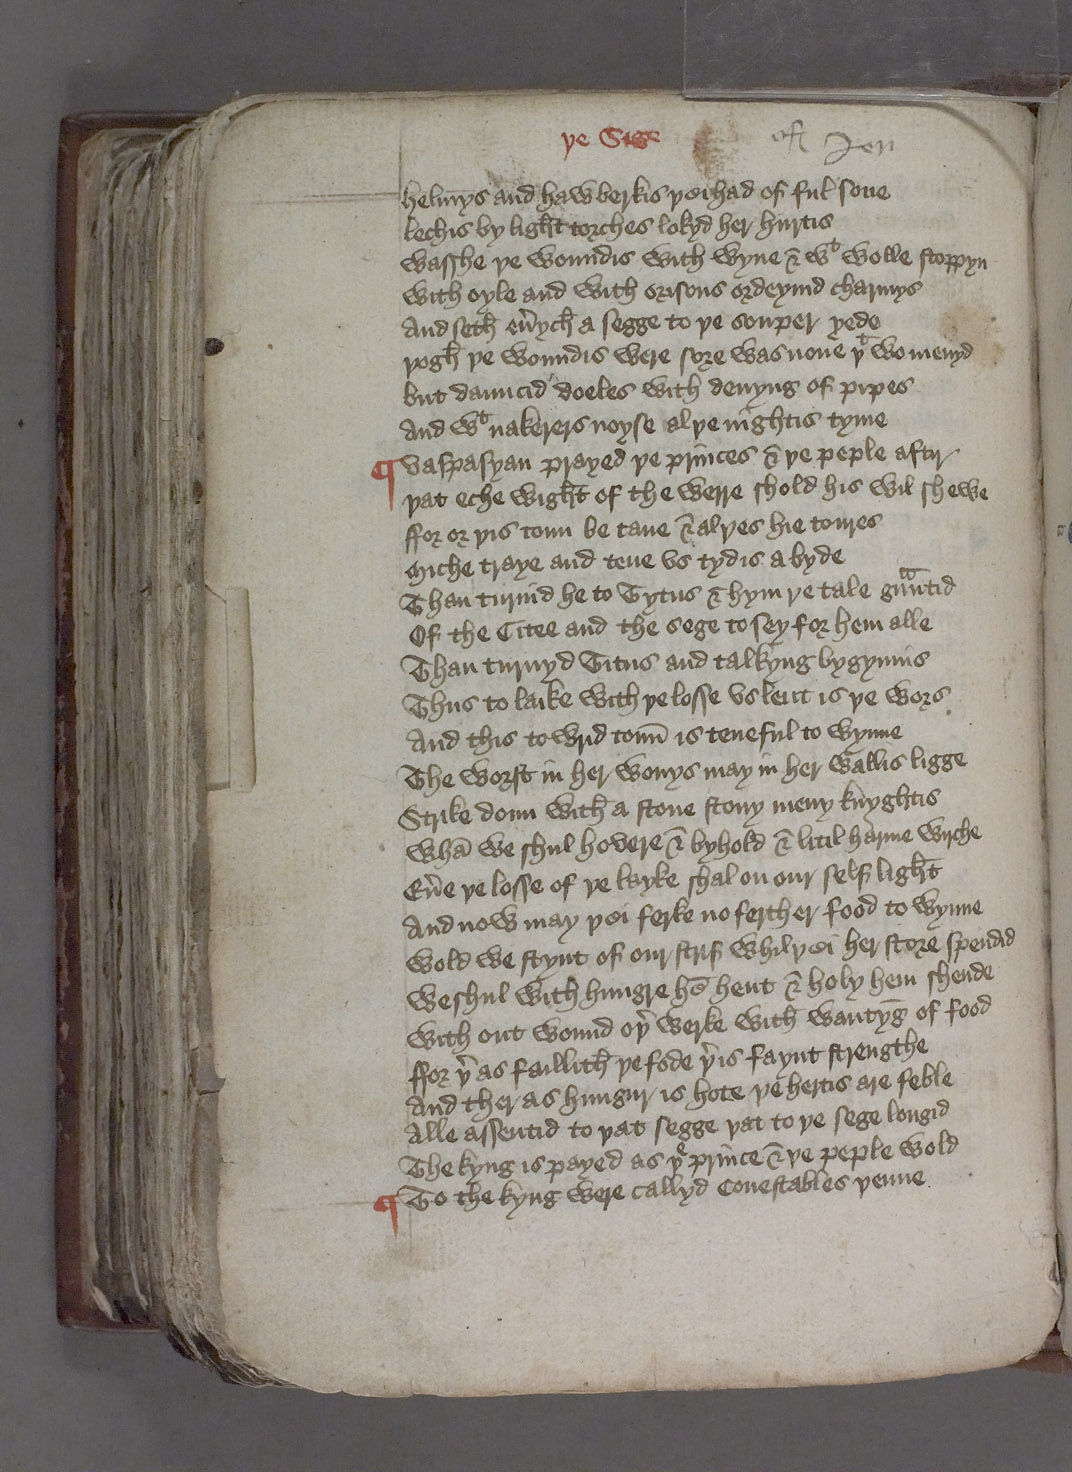 ye Sige of Jeri
helmys and hawberkis yei had of ful sone
lechis by light torches lokyd her hurtis
wasshe ye woundis with wyne & wt wolle stoppyn
with oyle and with orisons ordeynid charmys
And seth eu̅ych a segge to ye souper yede
yogh ye woundis were sore was none yt wo menyd
but dauncid doeles with denyng of pipes
And wt nakerers noyse al ye nightis tyme
¶ Vaspasyan prayed ye princes & ye peple aftir
yat eche wight of the werre shold his wil shewe
ffor or yis toun be tane & al yes hie toures
Miche traye and tene vs tydis a byde
Than turnid he to Tytus & hym ye tale gra̅u̅tid
Of the Citee and the sege to sey for hem alle
Than turnyd Titus and talkyng bygynnis
Thus to laike with ye losse vs lent is ye wors
And this towrid tou̅n is teneful to wynne
The worst in her wonys may in her wallis ligge
Strike doun with a stone stony meny knyghtis
wha̅ we shul hovere & byhold & litil harme wirche
Eu̅e ye losse of ye layke shal on our self light
And now may yei ferke no ferther food to wynne
wold we stynt of our strif whil yei her store spendid
we shul with hungre he̅ hent & holy hem shende
with out wound oyr werke with wanty̅g of food
ffor yr as faillith ye fode yr is faynt strengthe
And ther as hungur is hote ye hertis are feble
Alle assentid to yat segge yat to ye sege longid
The kyng is payed as ye prince & ye peple wold
¶ To the kyng were callyd conestables yenne